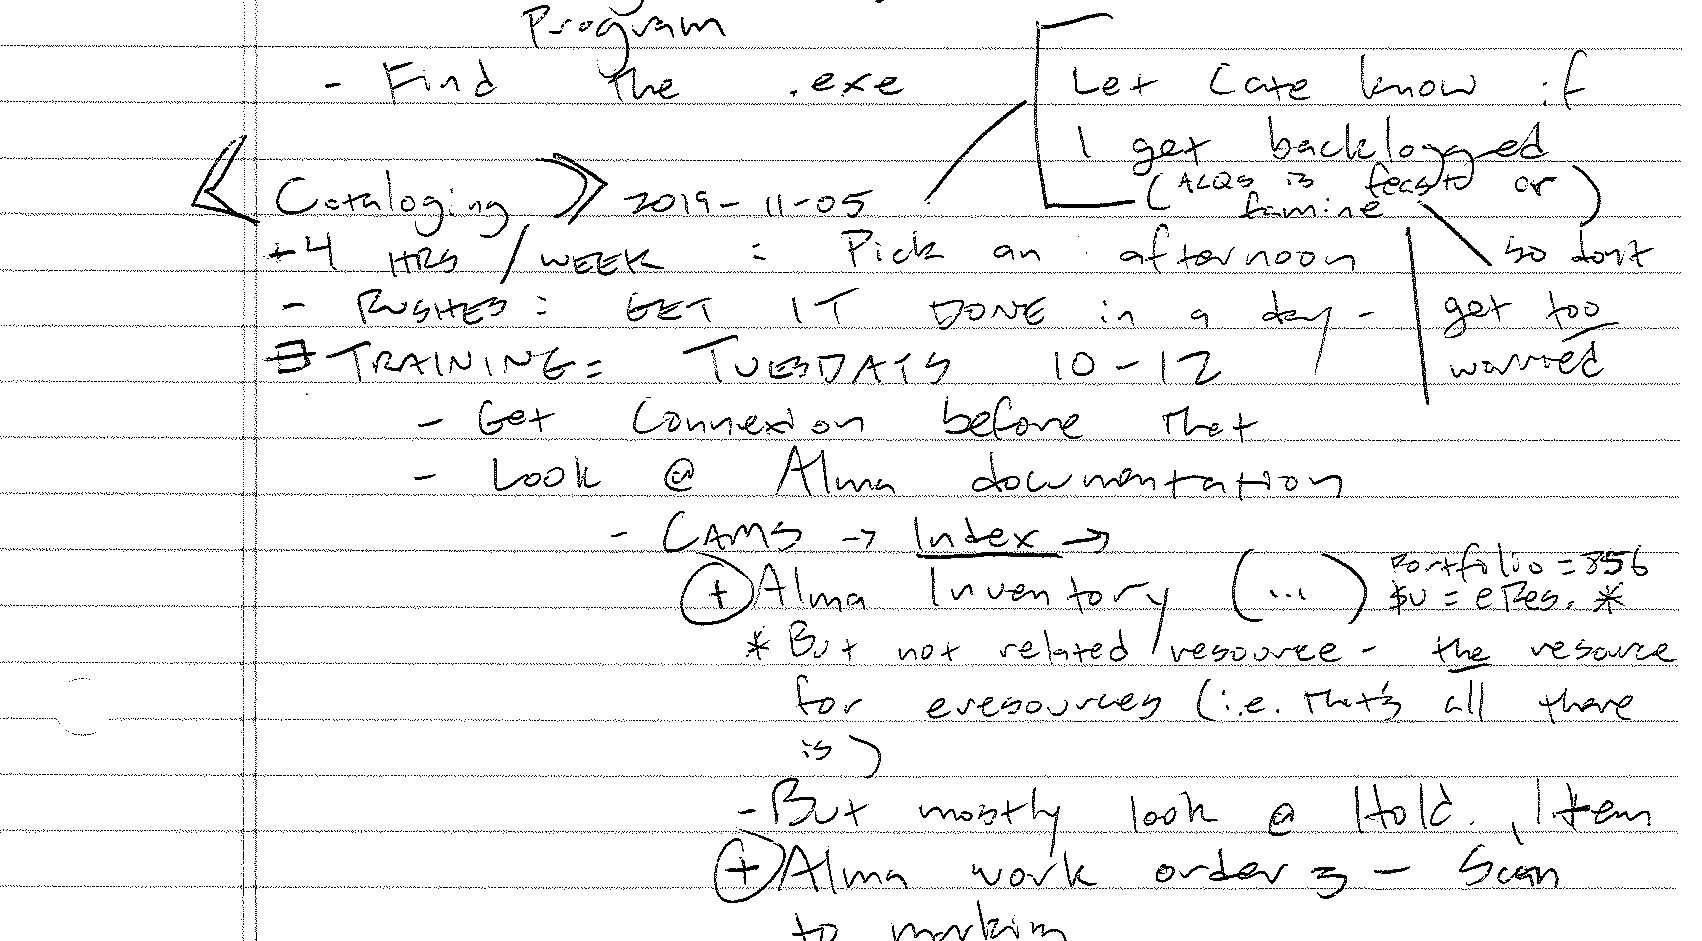 Program
- Find the .exe
Let Cate know if
I get backlogged
(ACQS is feast or
famine)
so don't
get too
worried
<Cataloging> 2019-11-05
-4 HRS/WEEK : Pick an afternoon
- RUSHES: GET IT DONE in a day -
TRAINING: TUESDAYS 10-12
- Get Connexion before that
- Look @ Alma documentation
- CAMS → Index →
+ Alma Inventory (...)
Portfolio = 856
$u = eRes. *
* But not related resource - the resource
for eresources (i.e. that's all there
is)
- But mostly look @ Hold., Item
+ Alma work orders - Scan
to marking